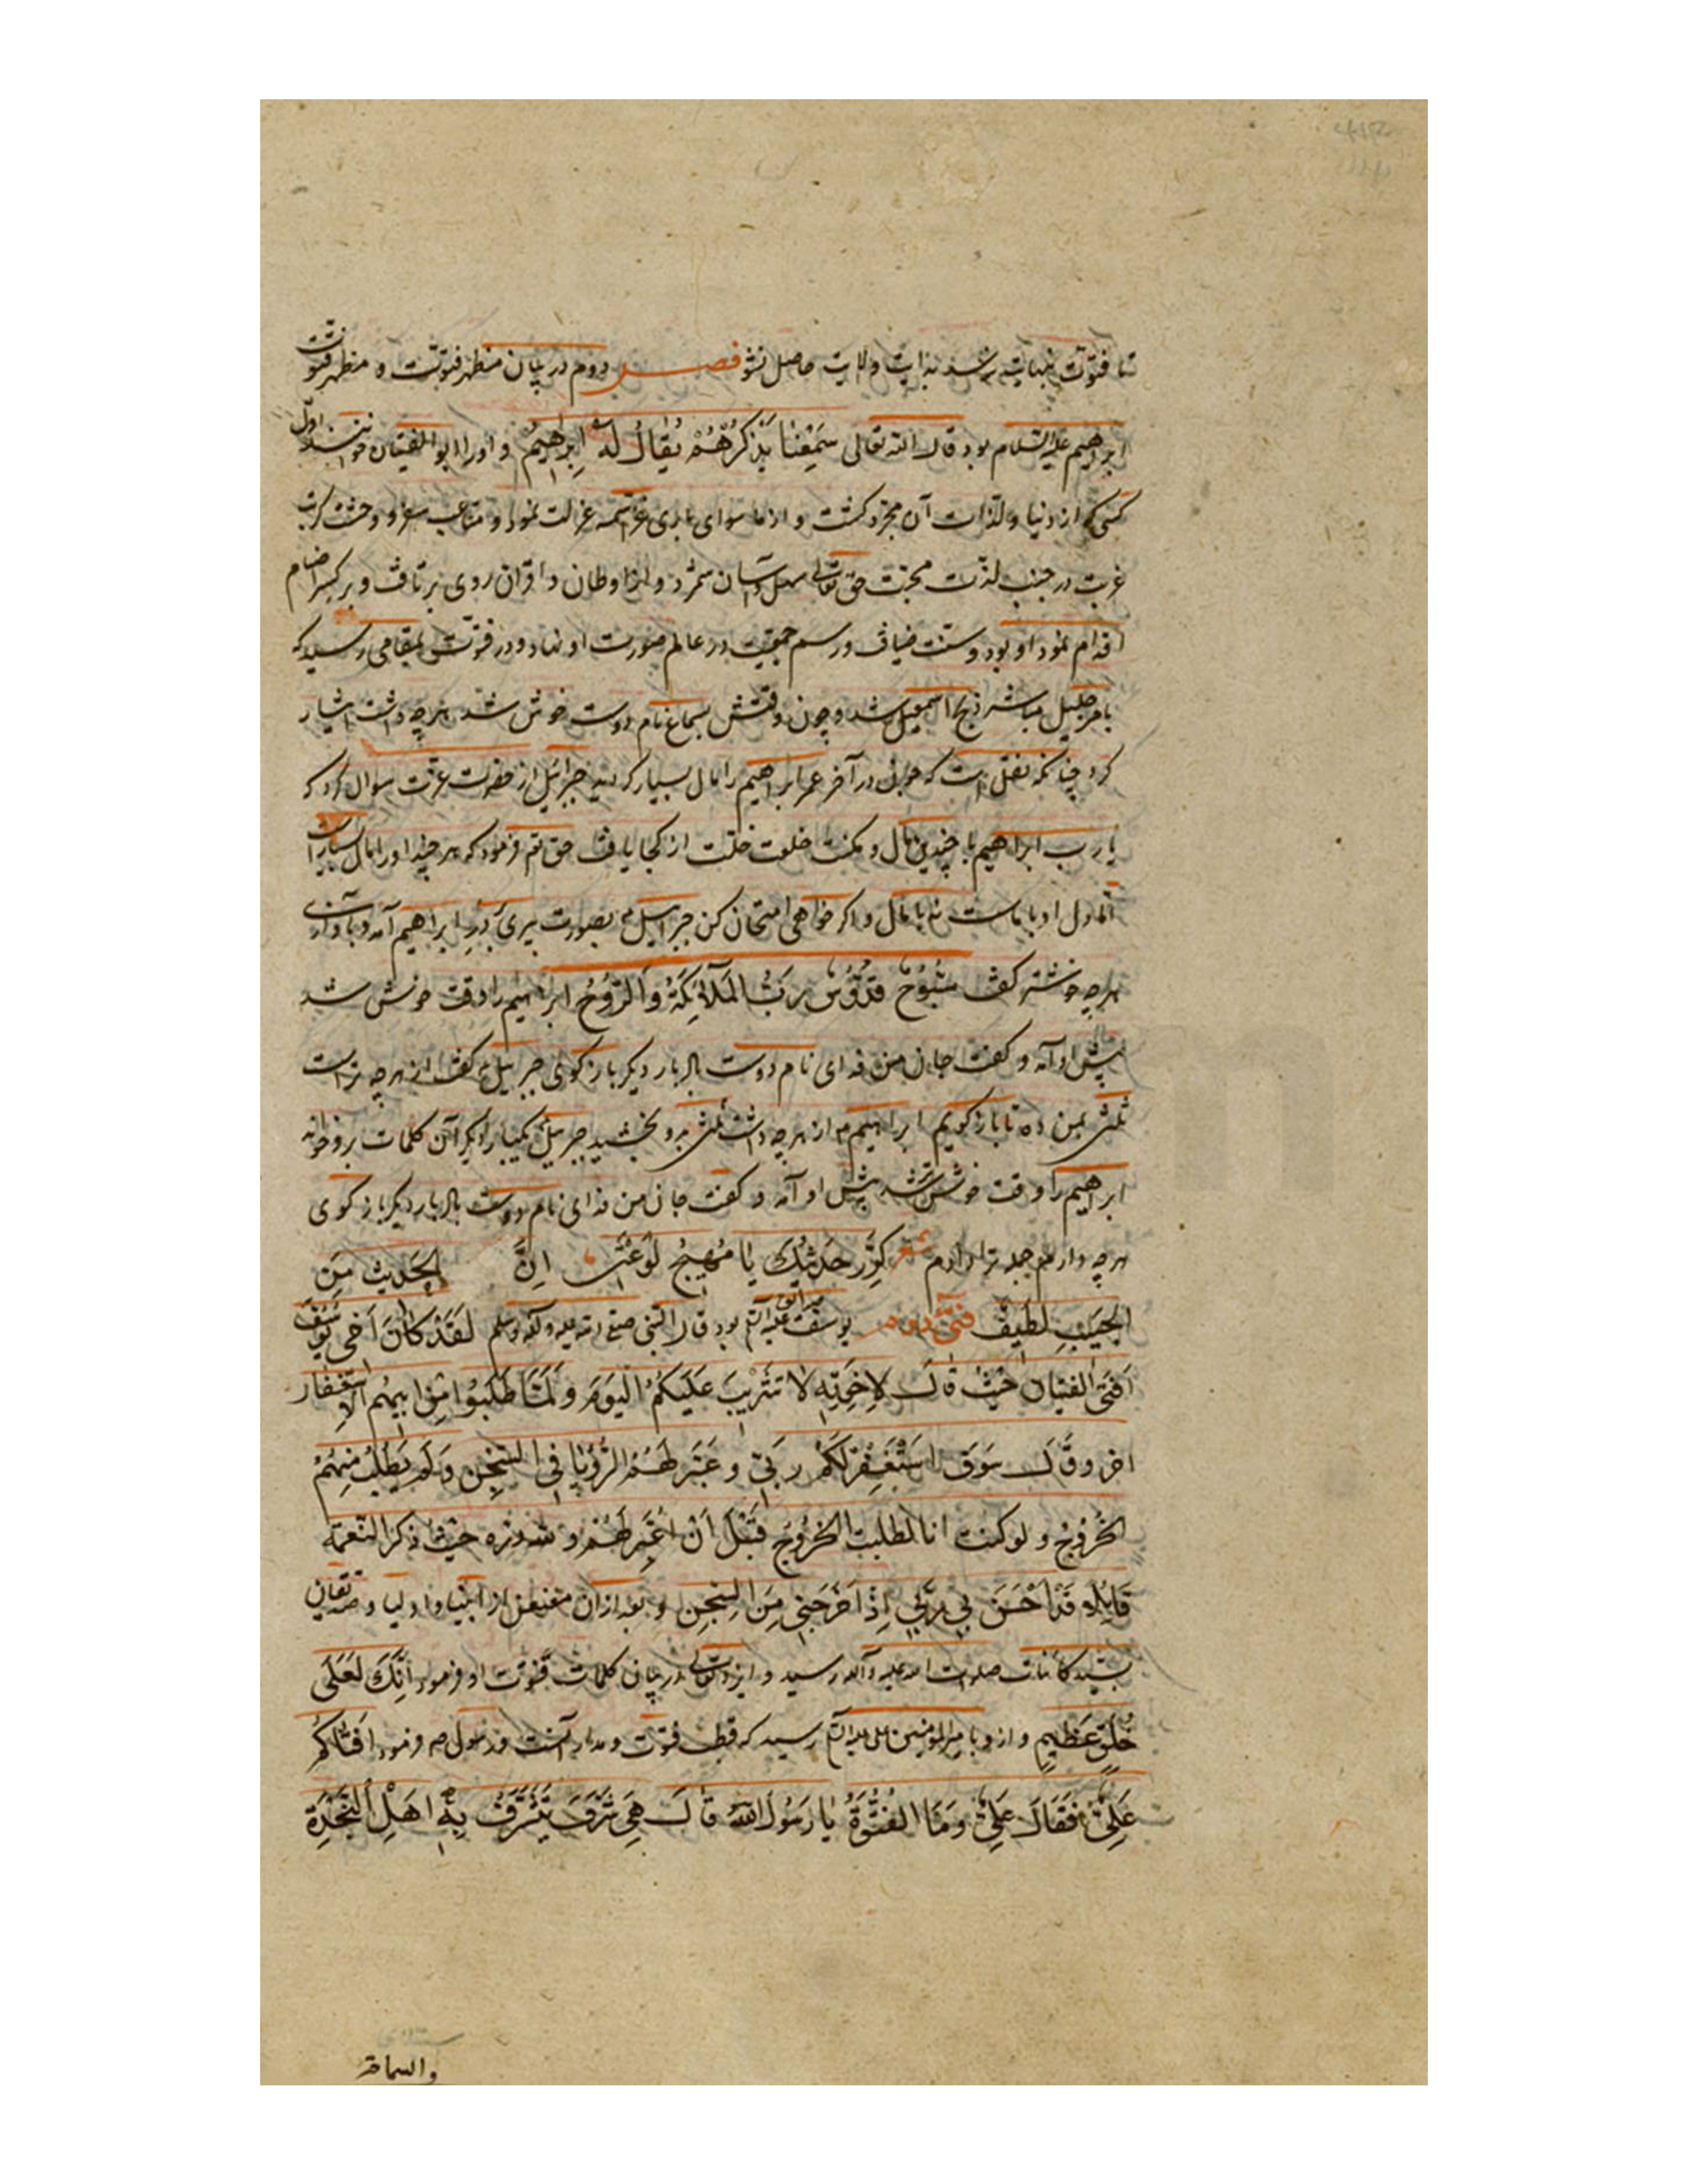 تا فتوّت بنهایت نرسد بدایت ولایت حاصل نشود فصل دوم در بیان مظهر فتوّت و مظهر فتوّت
ابراهیم علیه السلام بود قال الله تعالی سَمِعْنَا یَذْکُرُهُمْ یُقَالُ لَهُ اِبْرَاهِیمُ و او را ابو الفتیان خوانند اوّل
کسی که از دنیا و لذّات آن مجرّد کشت و از ما سوای باری عزّ اسمه عزلت نمود و متاعب سفر و وحشت کربت
غربت در جنب لذّت محبّت حق تعالی سهل و آسان شمرد و از اوطان و اقران روی برتافت و بر کسر اصنام
اقدام نمود او بود و سنّت ضیافت و رسم جمعیت در عالم صورت او نهاد و در فتوّت بمقامی رسید که
بامر جلیل مباشر ذبح اسمعیل شد و چون وقتش بسماع نام دوست خوش شد هرچه داشت ایثار
کرد چنانکه نقل است که چون در آخر عمر ابراهیم را مال بسیار کردید جبرائیل از حضرت عزّت سوال کرد که
یا رب ابراهیم با چندین مال و مکنت خلعت خلّت از کجا یافت حق تع فرمود که هر چند او را مال بسیار است
اما دل او با ماست نه با مال و اکر خواهی امتحان کن جبرائیل بصورت بشری بر در ابراهیم آمد و بآوازی
هرچه خوشتر کفت سُبُّوحٌ قُدُّوسٌ رَبُّ الْمَلَآئِکَةِ وَالرُّوحُ ابراهیم را وقت خوش شد
پیش او آمد و کفت جان من فدای نام دوست باد بار دیکر باز کوی جبرییل کفت از هرچه تراست
ثلثی بمن ده تا باز کویم ابراهیم از هرچه داشت ثلثی بدو بخشید جبرییل یکبار دیکر آن کلمات برو خواند
ابراهیم را وقت خوشتر شد پیش او آمد و کفت جان من فدای نام دوست باد بار دیکر باز کوی
هرچه دارم جمله ترا دادم شعر کَرِّر حَدِیثَکَ یَا مُهَیِّجَ لَوْعَتِی اِنَّ الحَدِیثَ مِنَ
الحَبِیبِ لَطِیفٌ فتی دوم یوسف صدیق علیه السلام بود قال النبی صلی الله علیه وآله وسلم لَقَدْ کَانَ اَخِی یُوسُفُ
اَفْتَی الفتیان حَیْثُ قالَ لاِخْوَتِهِ لَا تَثْرِیبَ عَلَیْکُمُ الْیَوْمَ وَلَمَّا طَلَبُوا مِنْ اَبِیهِمُ الاستغفار
اخر وقَالَ سَوْفَ اَسْتَغْفِرُ لَکُمْ رَبِّی وَعَبَّرَ لَهُمُ الرُّؤْیَا فِی السِّجْنِ وَلَمْ یَطْلُبْ مِنْهُمُ
الخُرُوجَ ولو کنت انا لطلبت الخُرُوجَ قَبْلَ اَنْ اُعَبِّرَ لَهُمْ و لله درّه حَیْثُ ذکر النّعمة
قَایِلاً قَدْ اَحْسَنَ بِی رَبِّی اِذْ اَخْرَجَنِی مِنَ السِّجْنِ و بعد از آن از انبیا و اولیا
بسیّد کاینات صلوات الله علیه وآله رسید و ایزد تعالی در بیان کلمات فتوّت او فرمود اِنَّکَ لَعَلَی
خُلُقٍ عَظِیمٍ و از و بامیر المؤمنین علی علیه السلام رسید که قطب فتوّت و مدار آنست و رسول ص فرمود اَفْتَاکُمْ
عَلِیٌّ فَقَالَ عَلِیٌّ وَمَا الْفُتُوَّةُ یَا رَسُولَ اللّهِ قَالَ هِیَ شَرَفٌ یَتَشَرَّفُ بِهِ اَهْلُ النَّجْدَةِ
والسماحة